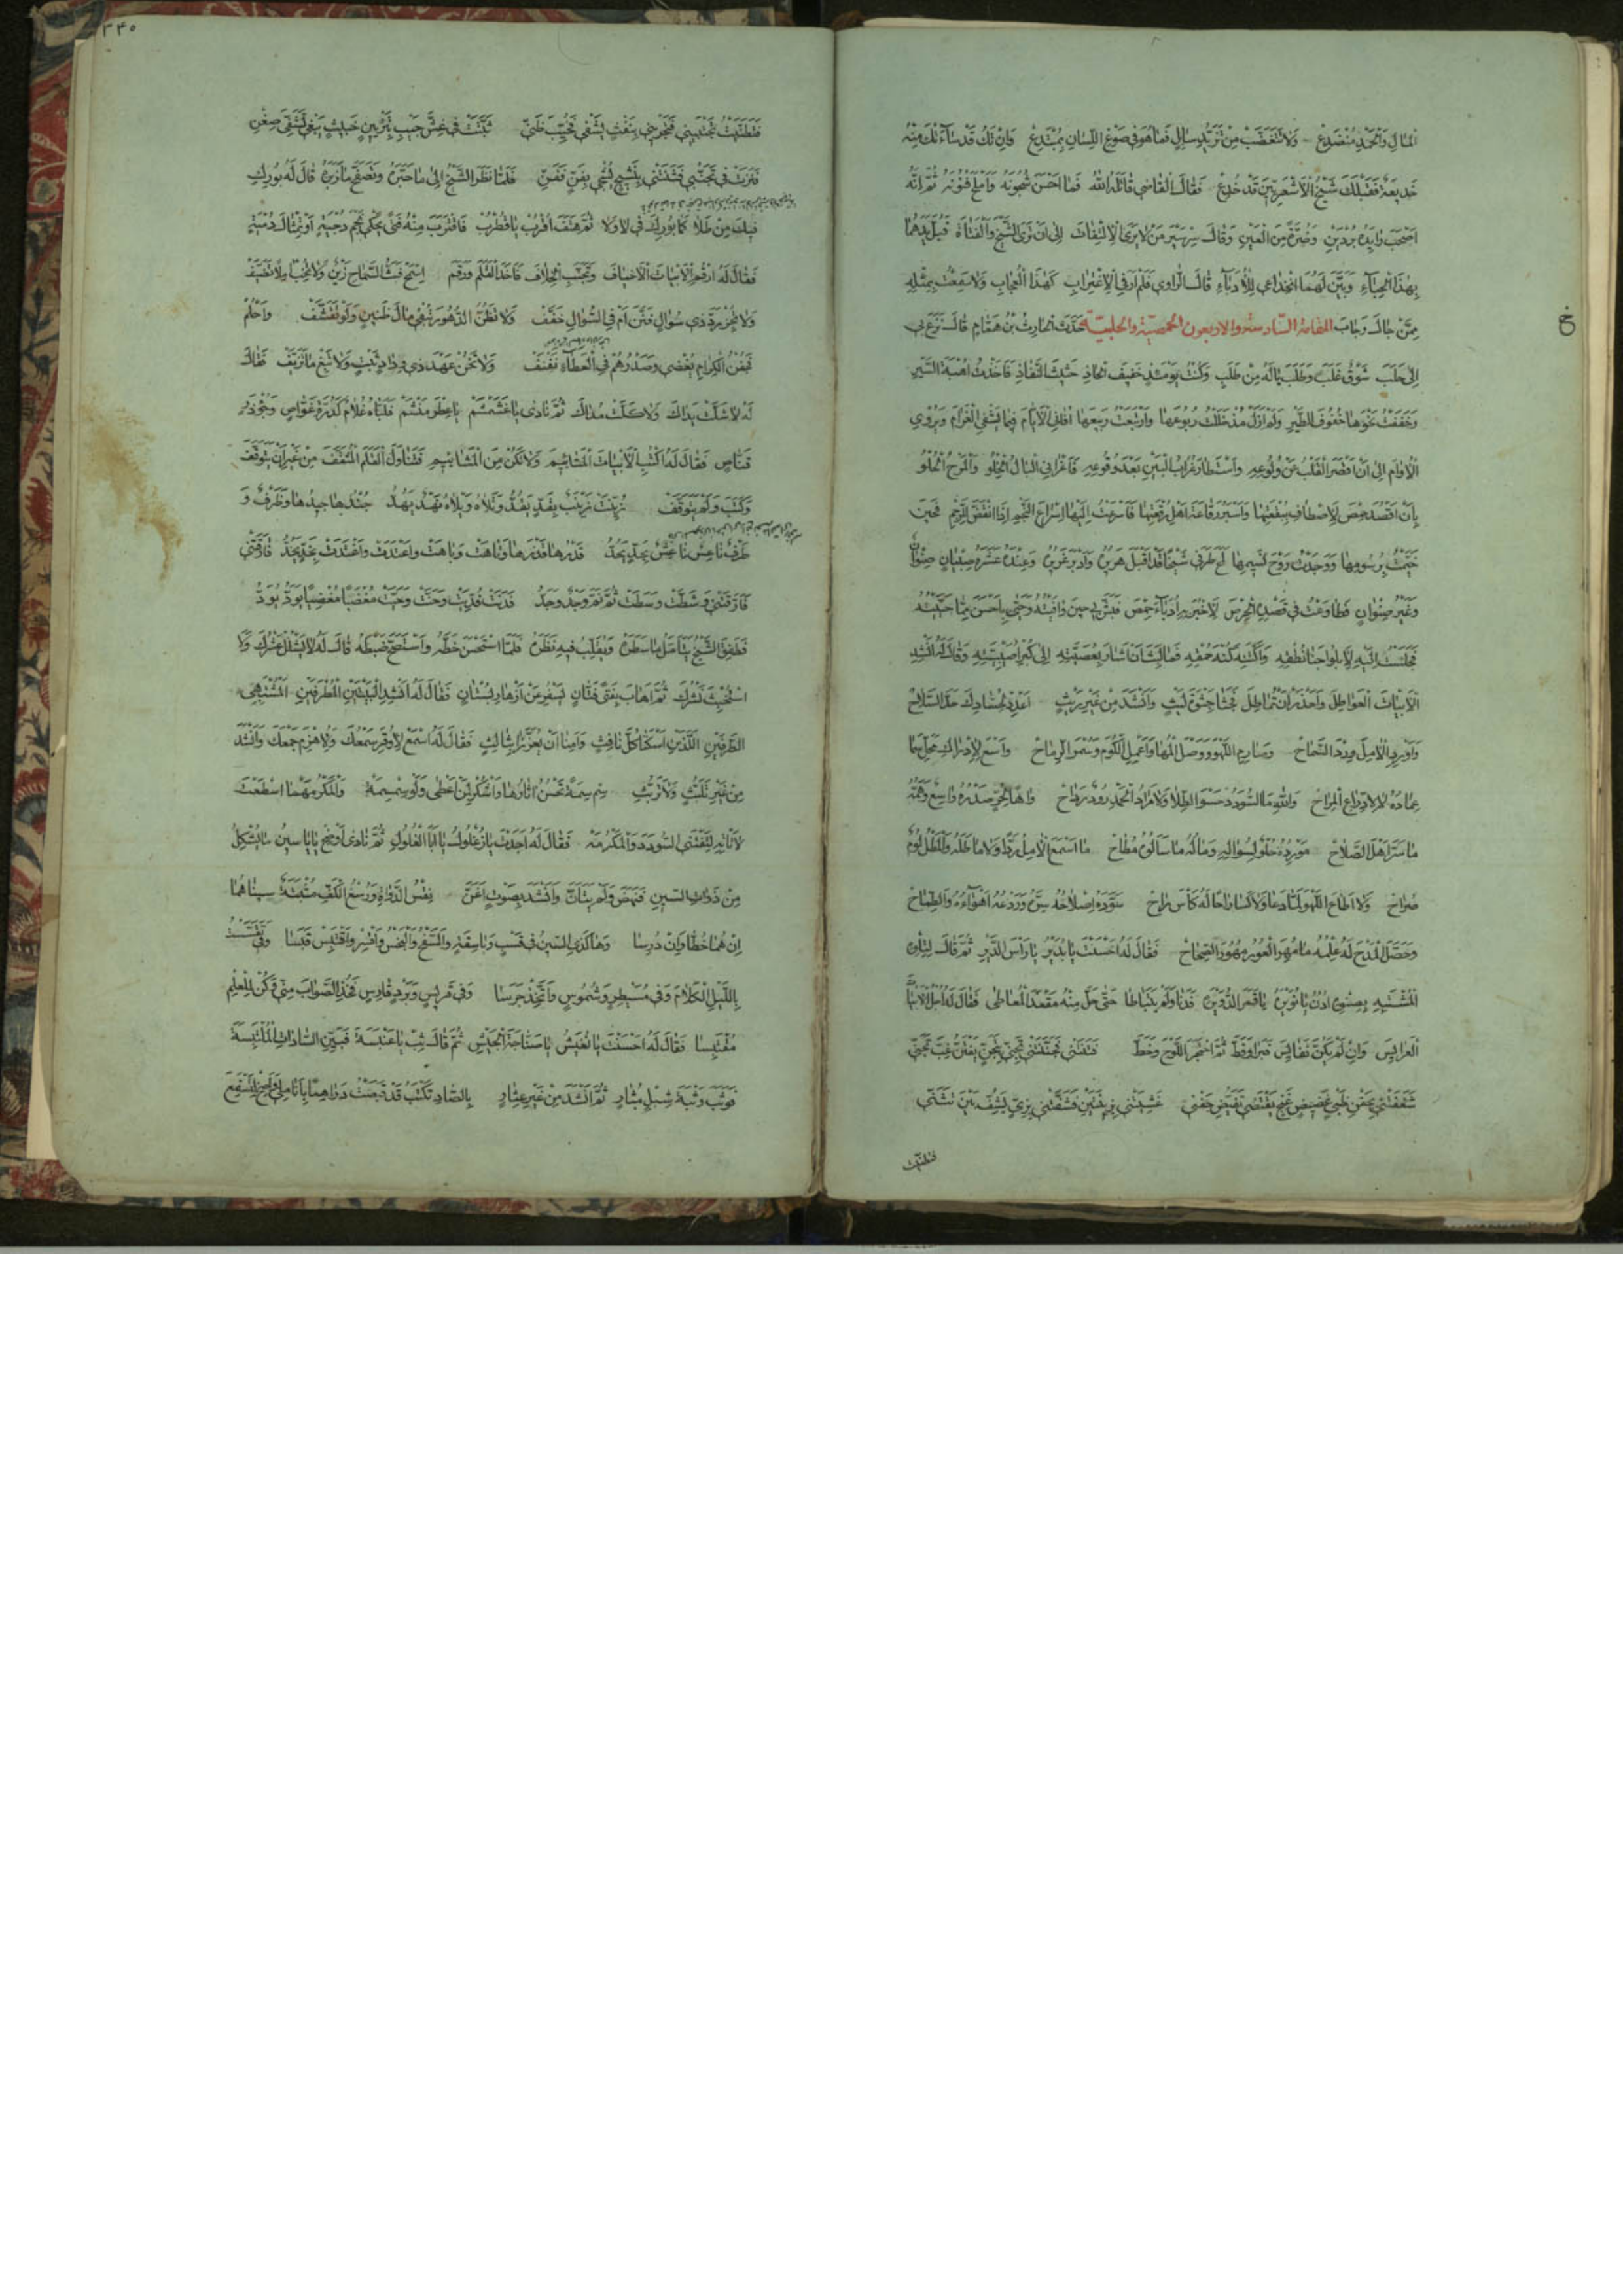 المال وانحد منصدع ولا تغضب من تزيد سائل فما هو في صوغ اللسان بمبتدع وان تك قد ساءتك منه
خديعة فقبلك شيخ الاشعريين قد خدع فقال القاضي قاتله الله فما احسن شجونه واملح فنونه ثم انه
اصحب رائده بردين وصرة من العين وقال سر سير من لا يرى الالتفات الى ان ترى الشيخ والفتاة فبل يدهما
بهذا الحباء وبين لهما انخداعي للادباء قال الراوي فلم ار في الاغتراب كهذا العجاب ولا سمعت بمثله
ممن جال وجاب المقامة السادسة والاربعون الحمصية والحلبية حدث الحارث بن همام قال نزع بي
الى حلب شوق غلب وطلب ياله من طلب وكنت يومئذ خفيف الحاذ حثيث النفاذ فاخذت اهبة السير
وخففت نحوها خفوف الطير ولم ازل مذ حللت ربوعها وارتبعت ربيعها افاني الايام فيما يشفي الغرام ويروي
الاوام الى ان اقصر القلب عن ولوعه واستطار غراب البين بعد وقوعه فاغراني البال الخلو والمرح الحلو
بان اقصد حمص لاصطاف ببقعتها واسبر رقاعة اهل رقعتها فاسرعت اليها اسراع النجم اذا انقض للرجم فحين
خيمت برسومها ووجدت روح نسيمها لمح طرفي شيخا قد اقبل هريره وادبر غريره وعنده عشرة صبيان صنوان
وغير صنوان فطاوعت في قصده الحرص لاخبر به ادباء حمص فبش بي حين وافيته وحيى باحسن مما حييته
فجلست اليه لابلو اجنا نطقه واكتنه كنه حمقه فما لبث ان اشار بعصيته الى كبر اصيبيته وقال له انشد
الابيات العواطل واحذر ان تماطل فجثا جثوة ليث وانشد من غير ريث اعدد لحسادك حد السلاح
واورد الامل ورد السماح وصارم اللهو ووصل المها واعمل الكوم وسمر الرماح واسع لادراك محل سما
عماده لا لادراع المراح والله ما السودد حسو الطلا ولا مراد الحمد رود رداح واها لحر صدره واسع وهمه
ما سر اهل الصلاح مورده حلو لسؤاله وماله ما سالوه مطاح ما اسمع الامل ردا ولا ماطله والمطل لؤم
صراح ولا اطاع اللهو لما دعا ولا كسا راحا له كاس راح سوده اصلاحه سره وردعه اهواءه والطماح
وحصل المدح له علمه ما مهر العور مهور الصحاح فقال له احسنت يا بدير يا راس الدير ثم قال لتلوه
المشتبه بصنوه ادن يا نويره يا قمر الدويره فدنا ولم يتباطا حتى حل منه مقعد المعاطى فقال له اجل الابيات
العرائس وان لم يكن نفائس فبرا وقط ثم احتجر اللوح وخط فتنتني فجننتني تجني بتجن يفتن غب تجني
شغفتني بجفن ظبي غضيض غنج يقتضي تغيض جفني غشيتني بزينتين فشفتني بزي يشف بين تثني
فتظنيت
٣٤٠
فتظنيت تجتبيني فتجزيني بنفث يشفي فخيب ظني ثبتت في غش جيب بتزيين خبيث يبغي تشفي ضغن
فنزت في تجني فثنتني بنشيج يشجي بفن ففن فلما نظر الشيخ الى ما حبره وتصفح ما زبره قال له بورك
فيك من طلا كما بورك في لا ولا ثم هتف اقرب يا قطرب فاقترب منه فتى يحكي نجم دجية او تمثال دمية
فقال له ارقم الابيات الاخياف وتجنب الخلاف فاخذ القلم ورقم اسمح فبث السماح زين ولا تخب املا تضيف
ولا تجز رد ذي سؤال فنن ام في السؤال خفف ولا تظن الدهور تبقي مال ضنين ولو تقشف واحلم
فجفن الكرام يغضي وصدرهم في العطاء نفنف ولا تخن عهد ذي وداد ثبت ولا تبغ ما تزيف فقال
له لا شلت يداك ولا كلت مداك ثم نادى يا غشمشم يا عطر منشم فلباه غلام كدرة غواص وجؤذر
قناص فقال له اكتب الابيات المتائيم ولا تكن من المشائيم فتناول القلم المثقف من غير ان يتوقف
وكتب ولم يتوقف زينت زينب بقد يقد وتلاه ويلاه نهد يهد جندها جيدها وظرف و
طرف ناعس ناعس بحد يحد قدرها قد زها وتاهت وباهت واعتدت واغتدت بخد يخد فارقتني
فارقتني وشطت وسطت ثم نم وجد وجد فدنت فديت وحنت وحيت مغضبا مغضيا يود يود
فطفق الشيخ يتامل ما سطره ويقلب فيه نظره فلما استحسن خطه واستصح ضبطه قال له لا شلل عشرك ولا
استخبث نشرك ثم اهاب بفتى فتان يسفر عن ازهار بستان فقال له انشد البيتين المطرفين المشتبهي
الطرفين اللذين اسكتا كل نافث وامنا ان يعززا بثالث فقال له اسمع لا وقر سمعك ولا هزم جمعك وانشد
من غير تلبث ولا تريث سم سمة تحسن اثارها واشكر لمن اعطى ولو سمسمة والمكر مهما اسطعت
لا تاته لتقتني السودد والمكرمة فقال له اجدت يا زغلول يا ابا الغلول ثم نادى اوضح يا ياسين ما يشكل
من ذوات السين فنهض ولم يتان وانشد بصوت اغن نقس الدواة ورسغ الكف مثبتة سيناهما
ان هما خطا وان درسا وهاكذى السين في قسب وباسقة والسفح والبخس واقسر واقتبس قبسا وفي تقسست
بالليل الكلام وفي مسيطر وشموس واتخذ جرسا وفي قريس وبرد قارس فخذ الصواب مني وكن للعلم
مقتبسا فقال له احسنت يا نغيش يا صناجة الجيش ثم قال ثب يا عنبسة فبين الصادات الملتبسة
فوثب وثبة شبل مثار ثم انشد من غير عثار بالصاد تكتب قد قبصت دراهما بانامل واصخ لتستمع